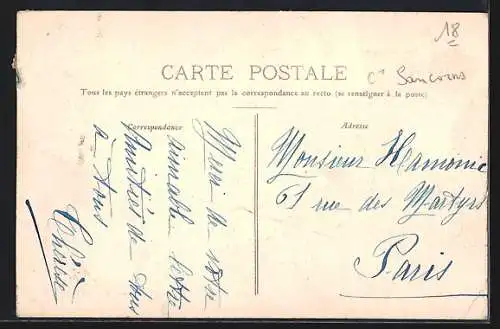 18
CARTE POSTALE
Cⁿ Sancoins
Tous les pays étrangers n'acceptent pas la correspondance au recto (se renseigner à la poste)
Correspondance
Adresse
Merci de votre
aimable lettre
Amitiés de tous
à tous
Monsieur Hamonic
61 rue des Martyrs
Paris